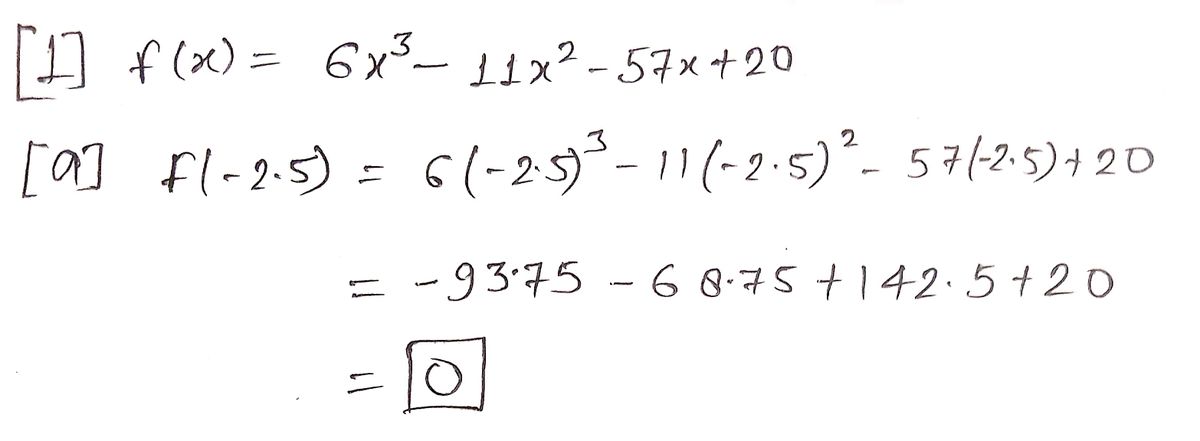 [1] f(x) = 6x³ - 11x² - 57x + 20
[a] f(-2.5) = 6(-2.5)³ - 11(-2.5)² - 57(-2.5) + 20
= -93.75 - 68.75 + 142.5 + 20
= 0